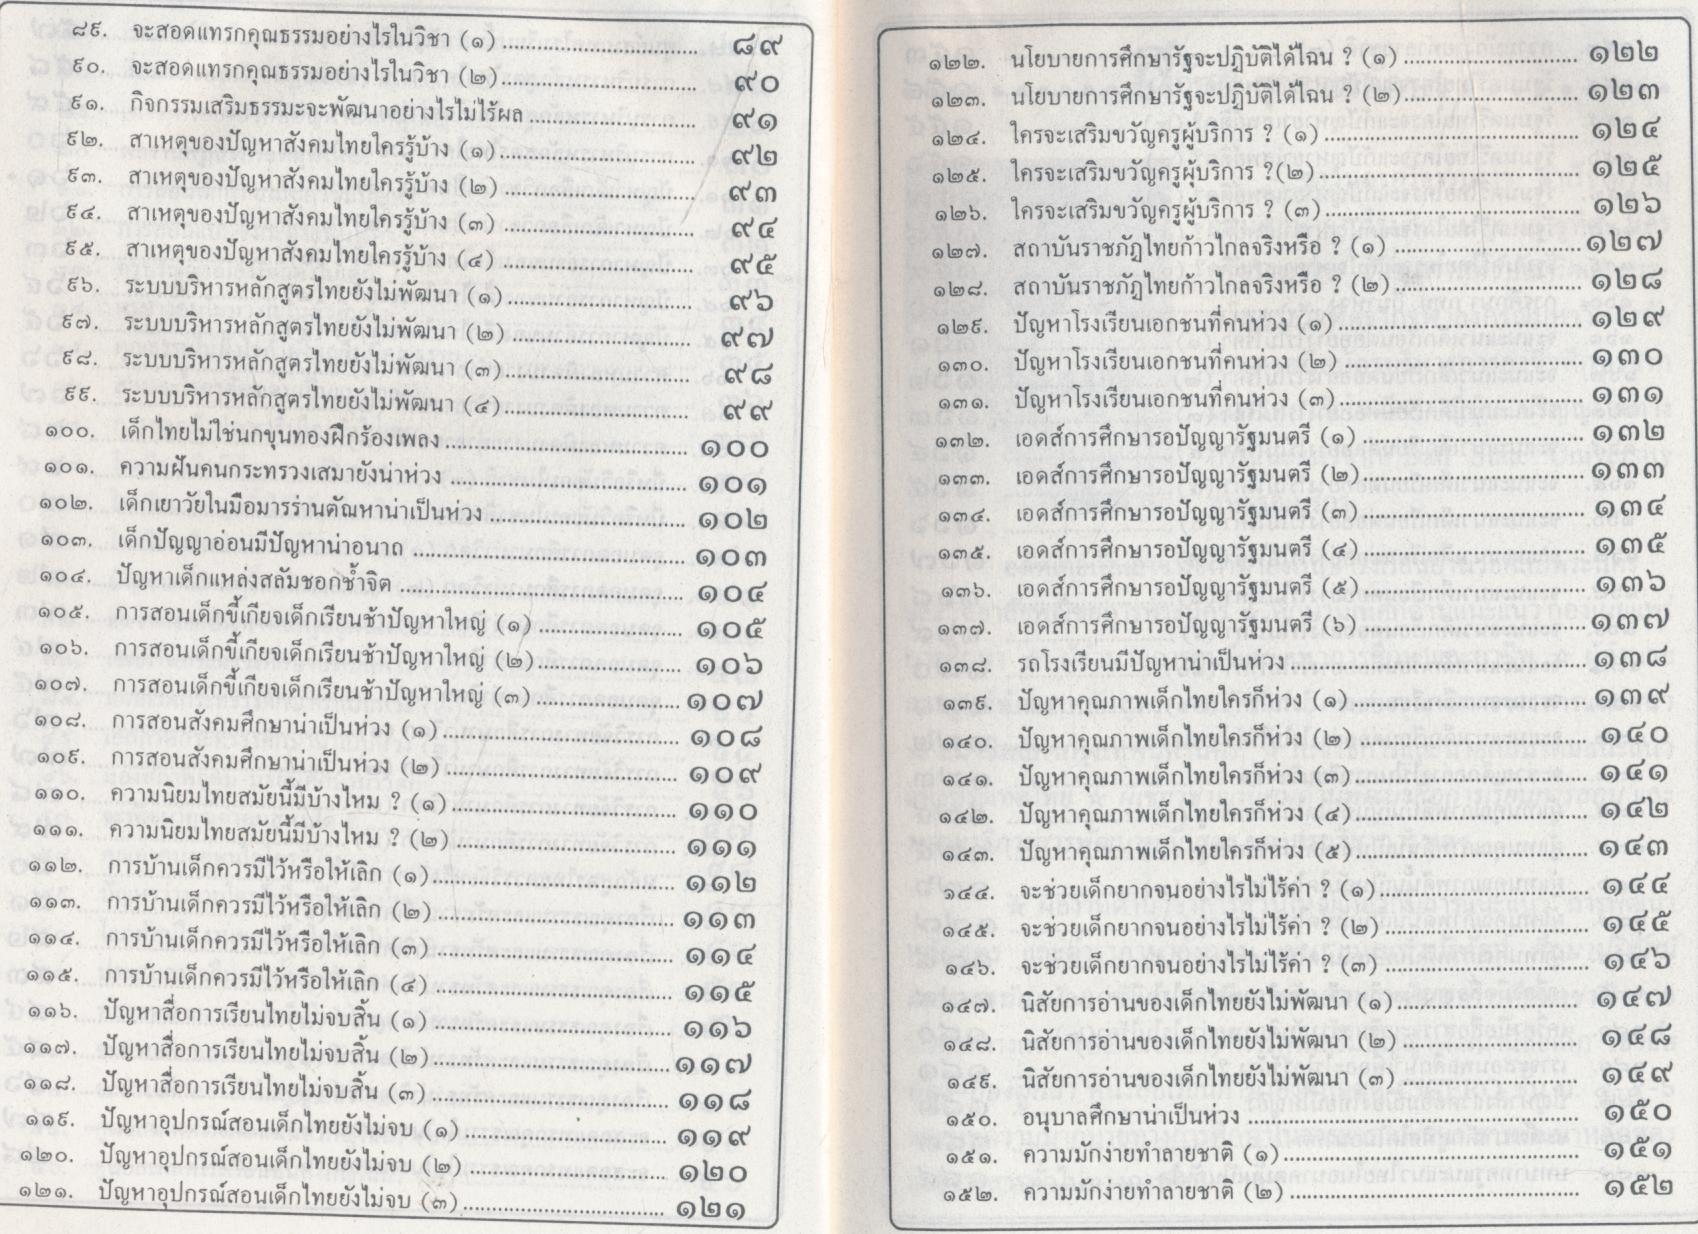 ๘๙. จะสอดแทรกคุณธรรมอย่างไรในวิชา (๑) ........ ๘๙
๙๐. จะสอดแทรกคุณธรรมอย่างไรในวิชา (๒) ........ ๙๐
๙๑. กิจกรรมเสริมธรรมะจะพัฒนาอย่างไรไม่ไร้ผล ........ ๙๑
๙๒. สาเหตุของปัญหาสังคมไทยใครรู้บ้าง (๑) ........ ๙๒
๙๓. สาเหตุของปัญหาสังคมไทยใครรู้บ้าง (๒) ........ ๙๓
๙๔. สาเหตุของปัญหาสังคมไทยใครรู้บ้าง (๓) ........ ๙๔
๙๕. สาเหตุของปัญหาสังคมไทยใครรู้บ้าง (๔) ........ ๙๕
๙๖. ระบบบริหารหลักสูตรไทยยังไม่พัฒนา (๑) ........ ๙๖
๙๗. ระบบบริหารหลักสูตรไทยยังไม่พัฒนา (๒) ........ ๙๗
๙๘. ระบบบริหารหลักสูตรไทยยังไม่พัฒนา (๓) ........ ๙๘
๙๙. ระบบบริหารหลักสูตรไทยยังไม่พัฒนา (๔) ........ ๙๙
๑๐๐. เด็กไทยไม่ใช่นกขุนทองฝึกร้องเพลง ........ ๑๐๐
๑๐๑. ความฝันคนกระทรวงเสมายังน่าห่วง ........ ๑๐๑
๑๐๒. เด็กเยาวัยในมือมารร่านตัณหาน่าเป็นห่วง ........ ๑๐๒
๑๐๓. เด็กปัญญาอ่อนมีปัญหาน่าอนาถ ........ ๑๐๓
๑๐๔. ปัญหาเด็กแหล่งสลัมชอกช้ำจิต ........ ๑๐๔
๑๐๕. การสอนเด็กขี้เกียจเด็กเรียนช้าปัญหาใหญ่ (๑) ........ ๑๐๕
๑๐๖. การสอนเด็กขี้เกียจเด็กเรียนช้าปัญหาใหญ่ (๒) ........ ๑๐๖
๑๐๗. การสอนเด็กขี้เกียจเด็กเรียนช้าปัญหาใหญ่ (๓) ........ ๑๐๗
๑๐๘. การสอนสังคมศึกษาน่าเป็นห่วง (๑) ........ ๑๐๘
๑๐๙. การสอนสังคมศึกษาน่าเป็นห่วง (๒) ........ ๑๐๙
๑๑๐. ความนิยมไทยสมัยนี้มีบ้างไหม ? (๑) ........ ๑๑๐
๑๑๑. ความนิยมไทยสมัยนี้มีบ้างไหม ? (๒) ........ ๑๑๑
๑๑๒. การบ้านเด็กควรมีไว้หรือให้เลิก (๑) ........ ๑๑๒
๑๑๓. การบ้านเด็กควรมีไว้หรือให้เลิก (๒) ........ ๑๑๓
๑๑๔. การบ้านเด็กควรมีไว้หรือให้เลิก (๓) ........ ๑๑๔
๑๑๕. การบ้านเด็กควรมีไว้หรือให้เลิก (๔) ........ ๑๑๕
๑๑๖. ปัญหาสื่อการเรียนไทยไม่จบสิ้น (๑) ........ ๑๑๖
๑๑๗. ปัญหาสื่อการเรียนไทยไม่จบสิ้น (๒) ........ ๑๑๗
๑๑๘. ปัญหาสื่อการเรียนไทยไม่จบสิ้น (๓) ........ ๑๑๘
๑๑๙. ปัญหาอุปกรณ์สอนเด็กไทยยังไม่จบ (๑) ........ ๑๑๙
๑๒๐. ปัญหาอุปกรณ์สอนเด็กไทยยังไม่จบ (๒) ........ ๑๒๐
๑๒๑. ปัญหาอุปกรณ์สอนเด็กไทยยังไมจบ (๓) ........ ๑๒๑
๑๒๒. นโยบายการศึกษารัฐจะปฏิบัติได้ไฉน ? (๑) ........ ๑๒๒
๑๒๓. นโยบายการศึกษารัฐจะปฏิบัติได้ไฉน ? (๒) ........ ๑๒๓
๑๒๔. ใครจะเสริมขวัญครูผู้บริการ ? (๑) ........ ๑๒๔
๑๒๕. ใครจะเสริมขวัญครูผุ้บริการ ?(๒) ........ ๑๒๕
๑๒๖. ใครจะเสริมขวัญครูผู้บริการ ? (๓) ........ ๑๒๖
๑๒๗. สถาบันราชภัฏไทยก้าวไกลจริงหรือ ? (๑) ........ ๑๒๗
๑๒๘. สถาบันราชภัฏไทยก้าวไกลจริงหรือ ? (๒) ........ ๑๒๘
๑๒๙. ปัญหาโรงเรียนเอกชนที่คนห่วง (๑) ........ ๑๒๙
๑๓๐. ปัญหาโรงเรียนเอกชนที่คนห่วง (๒) ........ ๑๓๐
๑๓๑. ปัญหาโรงเรียนเอกชนที่คนห่วง (๓) ........ ๑๓๑
๑๓๒. เอดส์การศึกษารอปัญญารัฐมนตรี (๑) ........ ๑๓๒
๑๓๓. เอดส์การศึกษารอปัญญารัฐมนตรี (๒) ........ ๑๓๓
๑๓๔. เอดส์การศึกษารอปัญญารัฐมนตรี (๓) ........ ๑๓๔
๑๓๕. เอดส์การศึกษารอปัญญารัฐมนตรี (๔) ........ ๑๓๕
๑๓๖. เอดส์การศึกษารอปัญญารัฐมนตรี (๕) ........ ๑๓๖
๑๓๗. เอดส์การศึกษารอปัญญารัฐมนตรี (๖) ........ ๑๓๗
๑๓๘. รถโรงเรียนมีปัญหาน่าเป็นห่วง ........ ๑๓๘
๑๓๙. ปัญหาคุณภาพเด็กไทยใครก็ห่วง (๑) ........ ๑๓๙
๑๔๐. ปัญหาคุณภาพเด็กไทยใครก็ห่วง (๒) ........ ๑๔๐
๑๔๑. ปัญหาคุณภาพเด็กไทยใครก็ห่วง (๓) ........ ๑๔๑
๑๔๒. ปัญหาคุณภาพเด็กไทยใครก็ห่วง (๔) ........ ๑๔๒
๑๔๓. ปัญหาคุณภาพเด็กไทยใครก็ห่วง (๕) ........ ๑๔๓
๑๔๔. จะช่วยเด็กยากจนอย่างไรไม่ไร้ค่า ? (๑) ........ ๑๔๔
๑๔๕. จะช่วยเด็กยากจนอย่างไรไม่ไร้ค่า ? (๒) ........ ๑๔๕
๑๔๖. จะช่วยเด็กยากจนอย่างไรไม่ไร้ค่า ? (๓) ........ ๑๔๖
๑๔๗. นิสัยการอ่านของเด็กไทยยังไม่พัฒนา (๑) ........ ๑๔๗
๑๔๘. นิสัยการอ่านของเด็กไทยยังไม่พัฒนา (๒) ........ ๑๔๘
๑๔๙. นิสัยการอ่านของเด็กไทยยังไม่พัฒนา (๓) ........ ๑๔๙
๑๕๐. อนุบาลศึกษาน่าเป็นห่วง ........ ๑๕๐
๑๕๑. ความมักง่ายทำลายชาติ (๑) ........ ๑๕๑
๑๕๒. ความมักง่ายทำลายชาติ (๒) ........ ๑๕๒